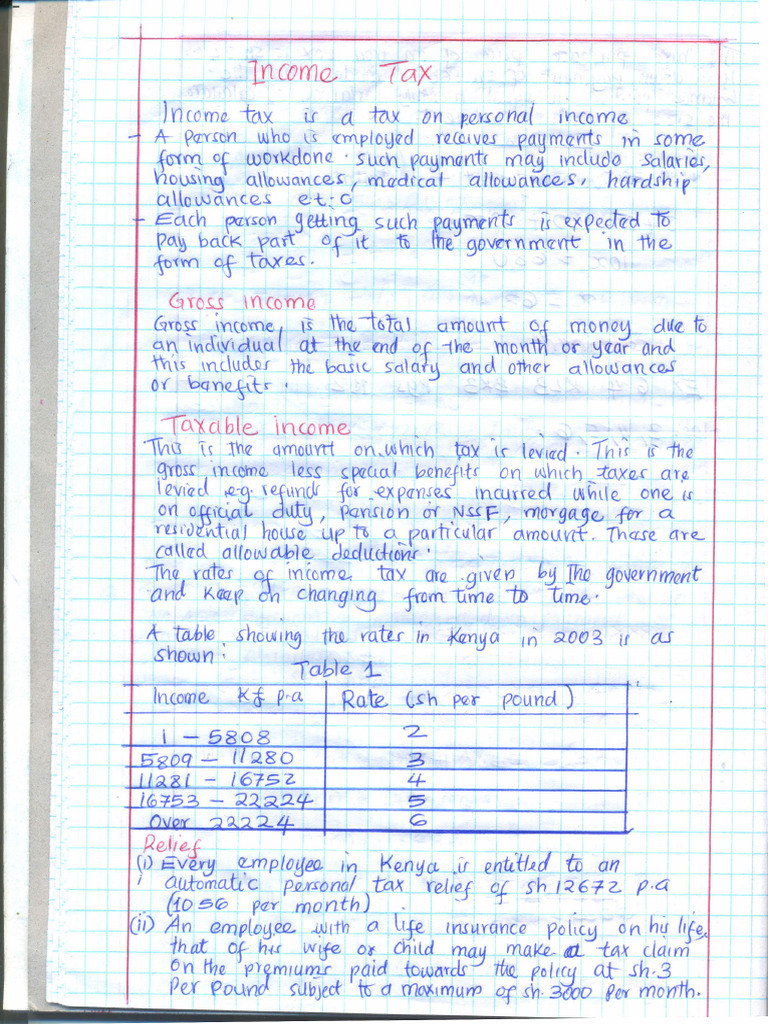 Income Tax
Income tax is a tax on personal income
- A person who is employed receives payments in some
form of workdone. such payments may include salaries,
housing allowances, medical allowances, hardship
allowances e.t.c
- Each person getting such payments is expected to
pay back part of it to the government in the
form of taxes.
Gross income
Gross income, is the total amount of money due to
an individual at the end of the month or year and
this includes the basic salary and other allowances
or benefits.
Taxable income
This is the amount on which tax is levied. This is the
gross income less special benefits on which taxes are
levied e.g. refunds for expenses incurred while one is
on official duty, pension or NSSF, morgage for a
residential house up to a particular amount. These are
called allowable deductions.
The rates of income tax are given by The government
and keep on changing from time to time.
A table showing the rates in Kenya in 2003 is as
shown:
Table 1
Income K£ p.a Rate (sh per pound)
1 - 5808 2
5809 - 11280 3
11281 - 16752 4
16753 - 22224 5
Over 22224 6
Relief
(i) Every employee in Kenya is entitled to an
automatic personal tax relief of sh.12672 p.a
(1056 per month)
(ii) An employee with a life insurance policy on his life,
that of his wife or child may make a tax claim
on the premiums paid towards the policy at sh.3
per pound subject to a maximum of sh.3000 per month.